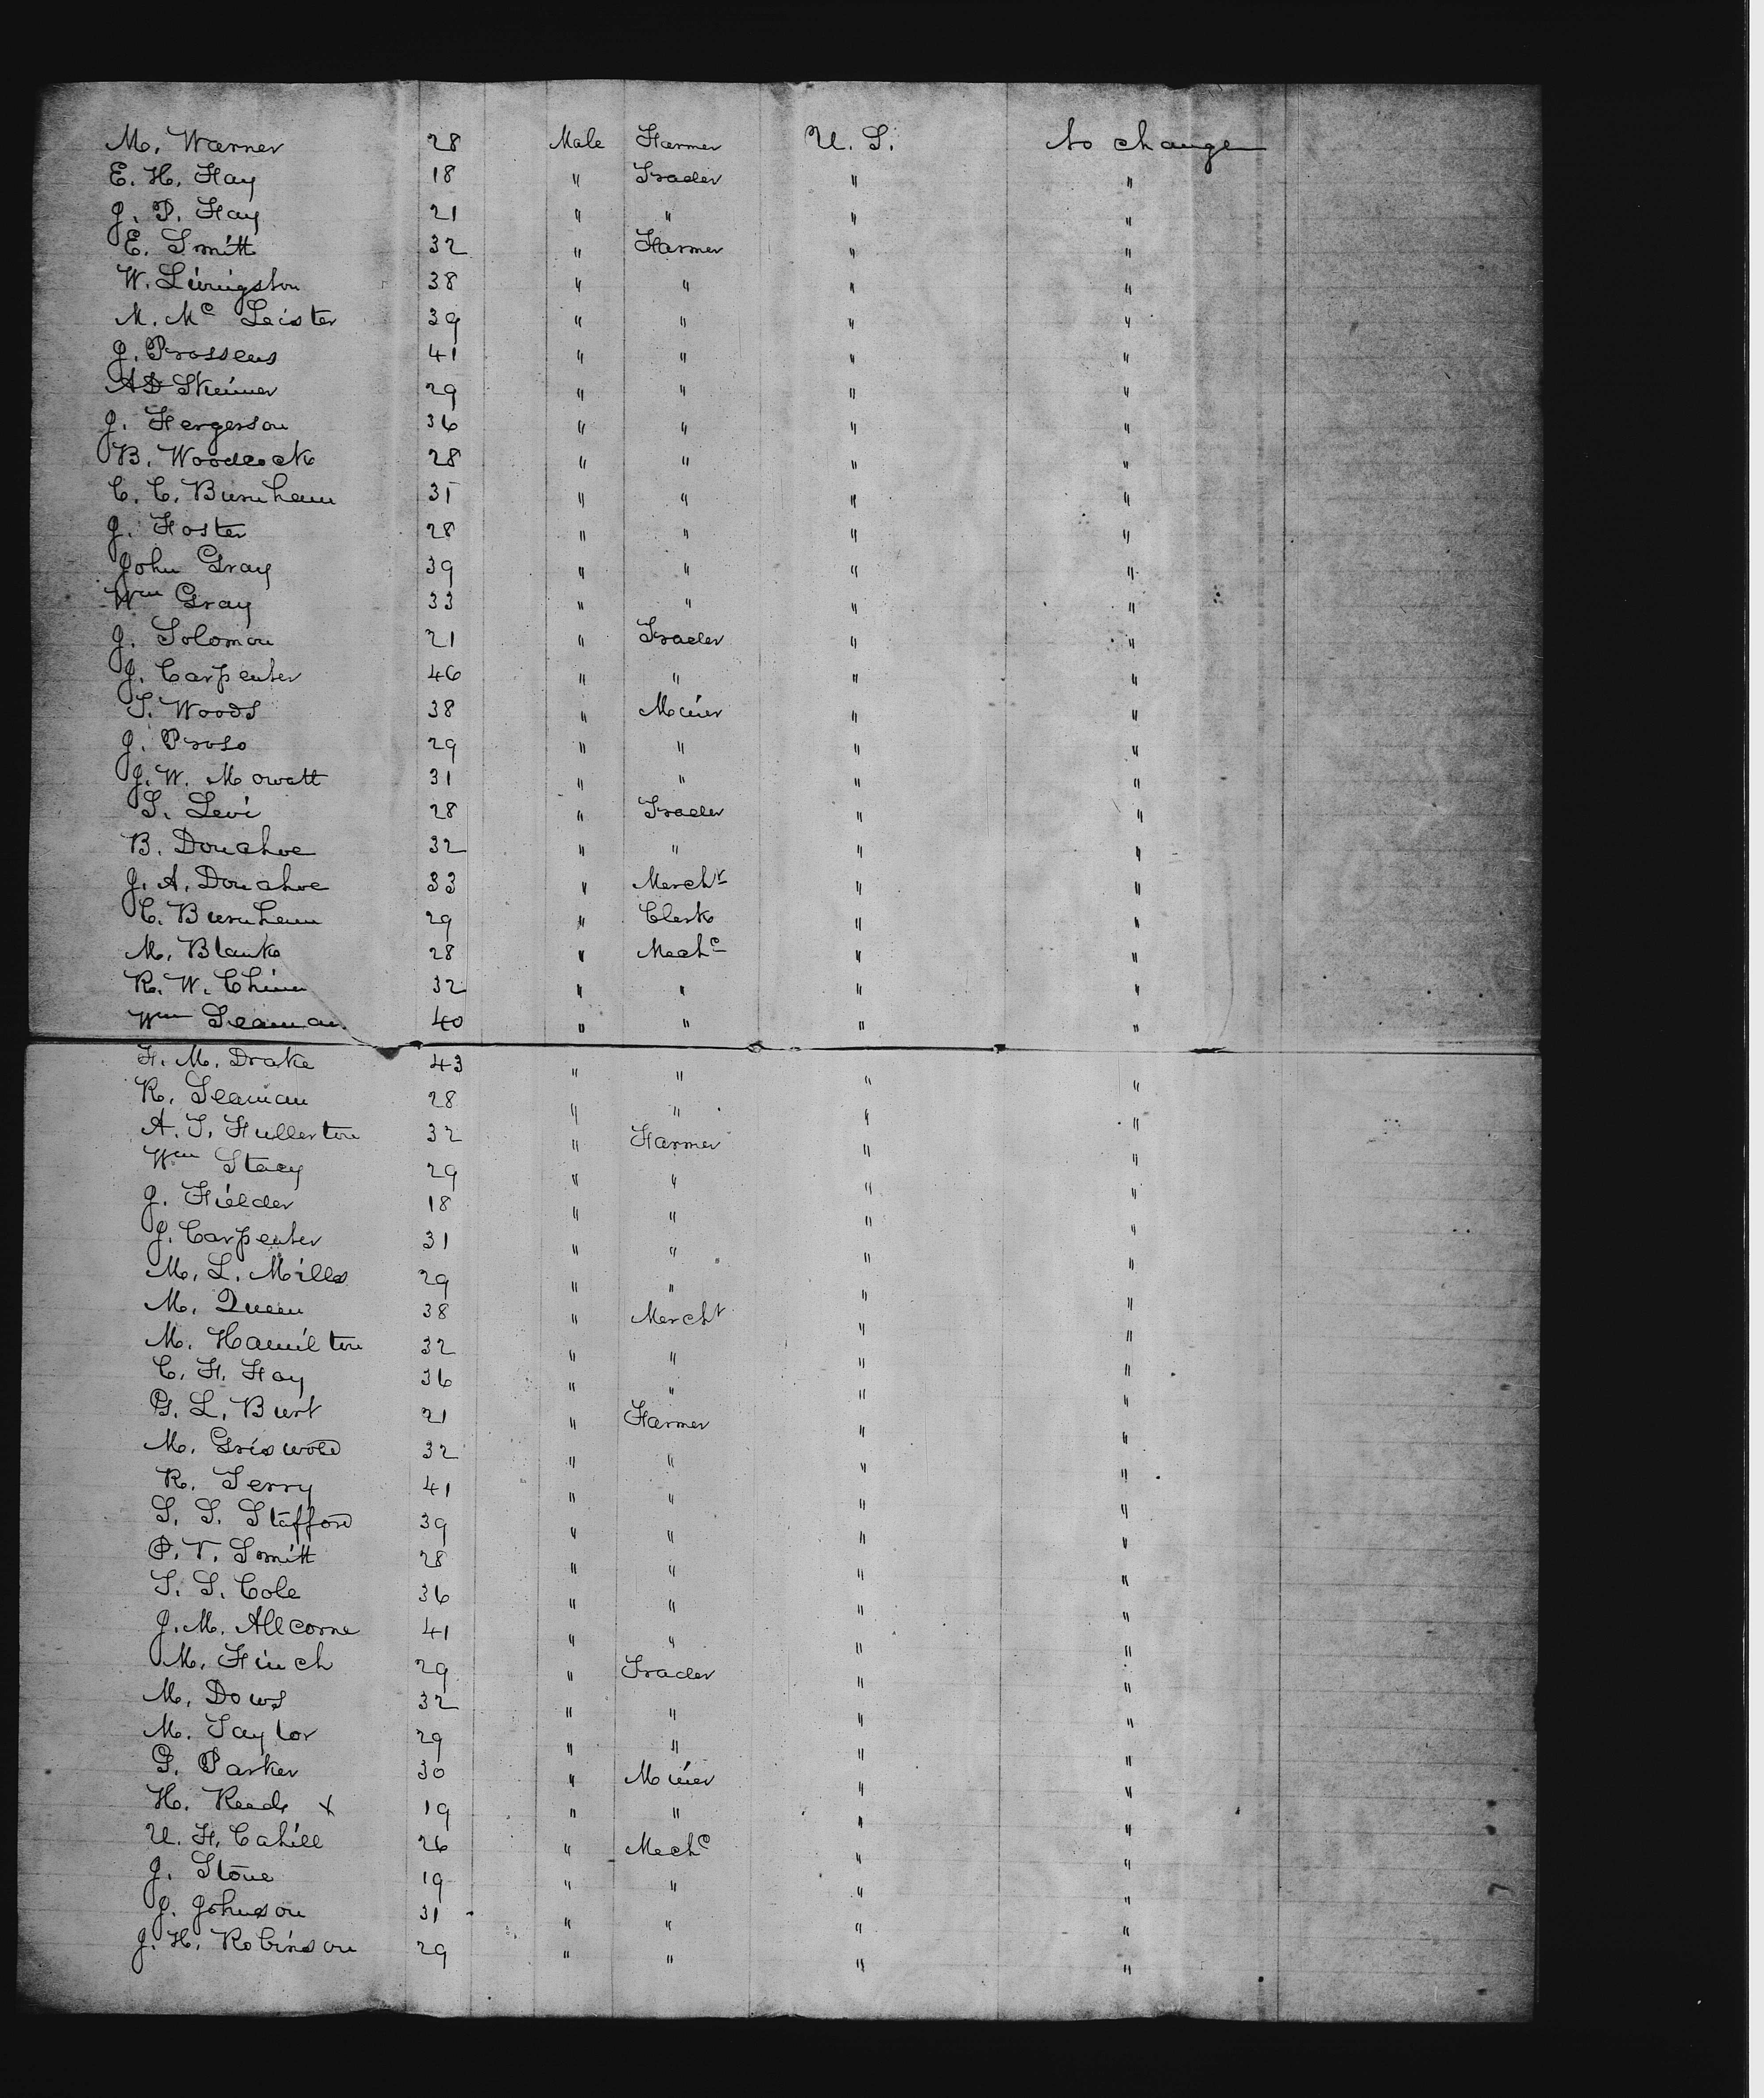 M. Warner 28 Male Farmer U. S. No change
E. H. Fay 18 " Trader " "
J. P. Fay 21 " " " "
E. Smith 32 " Farmer " "
W. Livingston 38 " " " "
M. Mc Leister 39 " " " "
J. Prossens 41 " " " "
A D Skinner 29 " " " "
J. Fergerson 36 " " " "
B. Woodcock 28 " " " "
C. C. Burnham 31 " " " "
J. Foster 28 " " " "
John Gray 39 " " " "
Wm Gray 33 " " " "
J. Solomon 21 " Trader " "
J. Carpenter 46 " " " "
S. Woods 38 " Miner " "
J. Proso 29 " " " "
J. W. Mowatt 31 " " " "
S. Levi 28 " Trader " "
B. Donahoe 32 " " " "
J. A. Donahoe 33 " Mercht " "
C. Burnham 29 " Clerk " "
M. Blank 28 " Mechc " "
R. W. Chinn 32 " " " "
Wm Seaman 40 " " " "
F. M. Drake 43 " " " "
R. Seaman 28 " " " "
A. S. Fullerton 32 " Farmer " "
Wm Stacy 29 " " " "
J. Fielder 18 " " " "
J. Carpenter 31 " " " "
M. L. Mills 29 " " " "
M. Queen 38 " Mercht " "
M. Hamilton 32 " " " "
C. F. Fay 36 " " " "
G. L. Burt 21 " Farmer " "
M. Griswold 32 " " " "
R. Terry 41 " " " "
S. S. Stafford 39 " " " "
P. V. Smith 28 " " " "
T. S. Cole 36 " " " "
J. M. Allcorne 41 " " " "
M. Finch 29 " Trader " "
M. Dows 32 " " " "
M. Taylor 29 " " " "
G. Parker 30 " Miner " "
H. Reede x 19 " " " "
U. F. Cahill 26 " Mechc " "
J. Stone 19 " " " "
J. Johnson 31 " " " "
J. H. Robinson 29 " " " "